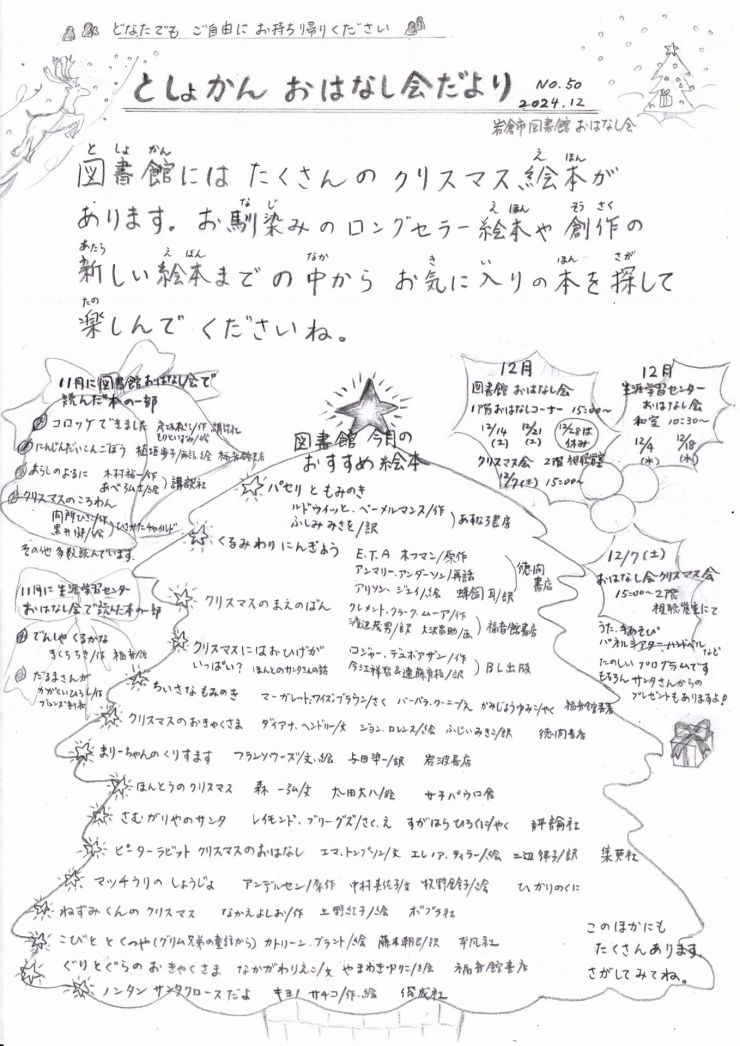 どなたでも ご自由に お持ち帰りください
としょかん おはなし会だより
NO.50
2024.12
岩倉市図書館 おはなし会
図書館には たくさんの クリスマス絵本が
あります。お馴染みの ロングセラー絵本や 創作の
新しい絵本までの中から お気に入りの本を探して
楽しんで くださいね。
11月に図書館おはなし会で
読んだ本の一部
コロッケできました
にんじんだいこんごぼう 植垣歩子/再話・絵 福音館書店
あらしのよるに 木村裕一/作
あべ弘士/絵 講談社
クリスマスのころわん
間所ひさこ/作
黒井健/絵 ひさかたチャイルド
その他 多数読んでいます。
11月に 生涯学習センター
おはなし会で読んだ本の一部
でんしゃ くるかな
きくちちき/作 福音館
だるまさんが
かがくいひろし/作
ブロンズ新社
12月
図書館 おはなし会
1階おはなしコーナー 15:00〜
12/14(土) 12/21(土) 12/28は休み
クリスマス会 2階 視聴覚室
12/7(土) 15:00〜
12月
生涯学習センター
おはなし会
和室 10:30〜
12/4(水) 12/18(水)
12/7(土)
おはなし会クリスマス会
15:00〜 2階
視聴覚室にて
うた、手あそび
パネルシアター・ハンドベル など
たのしい プログラムです
もちろん サンタさんからの
プレゼントもありますよ!
図書館 今月の
おすすめ絵本
パセリともみのき
ルドウィッヒ・ベーメルマンス/作
ふしみみさを/訳 あすなろ書房
くるみわりにんぎょう
E.T.A ホフマン/原作
アンマリー・アンダーソン/再話
アリソン・ジェイ/絵 蜂飼耳/訳 徳間書店
クリスマスのまえのばん
クレメント・クラーク・ムーア/作
渡辺茂男/訳 大沢昌助/画 福音館書店
クリスマスにはおひげが
いっぱい? ほんとのサンタさんの話
ロジャー・デュボアザン/作
今江祥智&遠藤育枝/訳 BL出版
ちいさなもみのき マーガレット・ワイズ・ブラウン/さく バーバラ・クーニー/え かみじょうゆみこ/やく 福音館書店
クリスマスのおきゃくさま ダイアナ・ヘンドリー/文 ジョン・ロレンス/絵 ふじいみきこ/訳 徳間書店
まりーちゃんのくりすます フランソワーズ/文・絵 与田凖一/訳 岩波書店
ほんとうのクリスマス 森一弘/文 太田大八/絵 女子パウロ会
さむがりやのサンタ レイモンド・ブリーグズ/さく・え すがはらひろくに/やく 評論社
ピーターラビット クリスマスのおはなし エマ・トンプソン/文 エレノア・テイラー/絵 三辺律子/訳 集英社
マッチうりのしょうじょ アンデルセン/原作 中村美佐子/文 牧野鈴子/絵 ひかりのくに
ねずみくんのクリスマス なかえよしお/作 上野紀子/絵 ポプラ社
こびととくつや(グリム兄弟の童話から) カトリーン・ブラント/絵 藤本朝巳/訳 平凡社
ぐりとぐらのおきゃくさま なかがわりえこ/文 やまわきゆりこ/絵 福音館書店
ノンタン サンタクロースだよ キヨノサチコ/作・絵 偕成社
このほかにも
たくさんあります。
さがしてみてね。